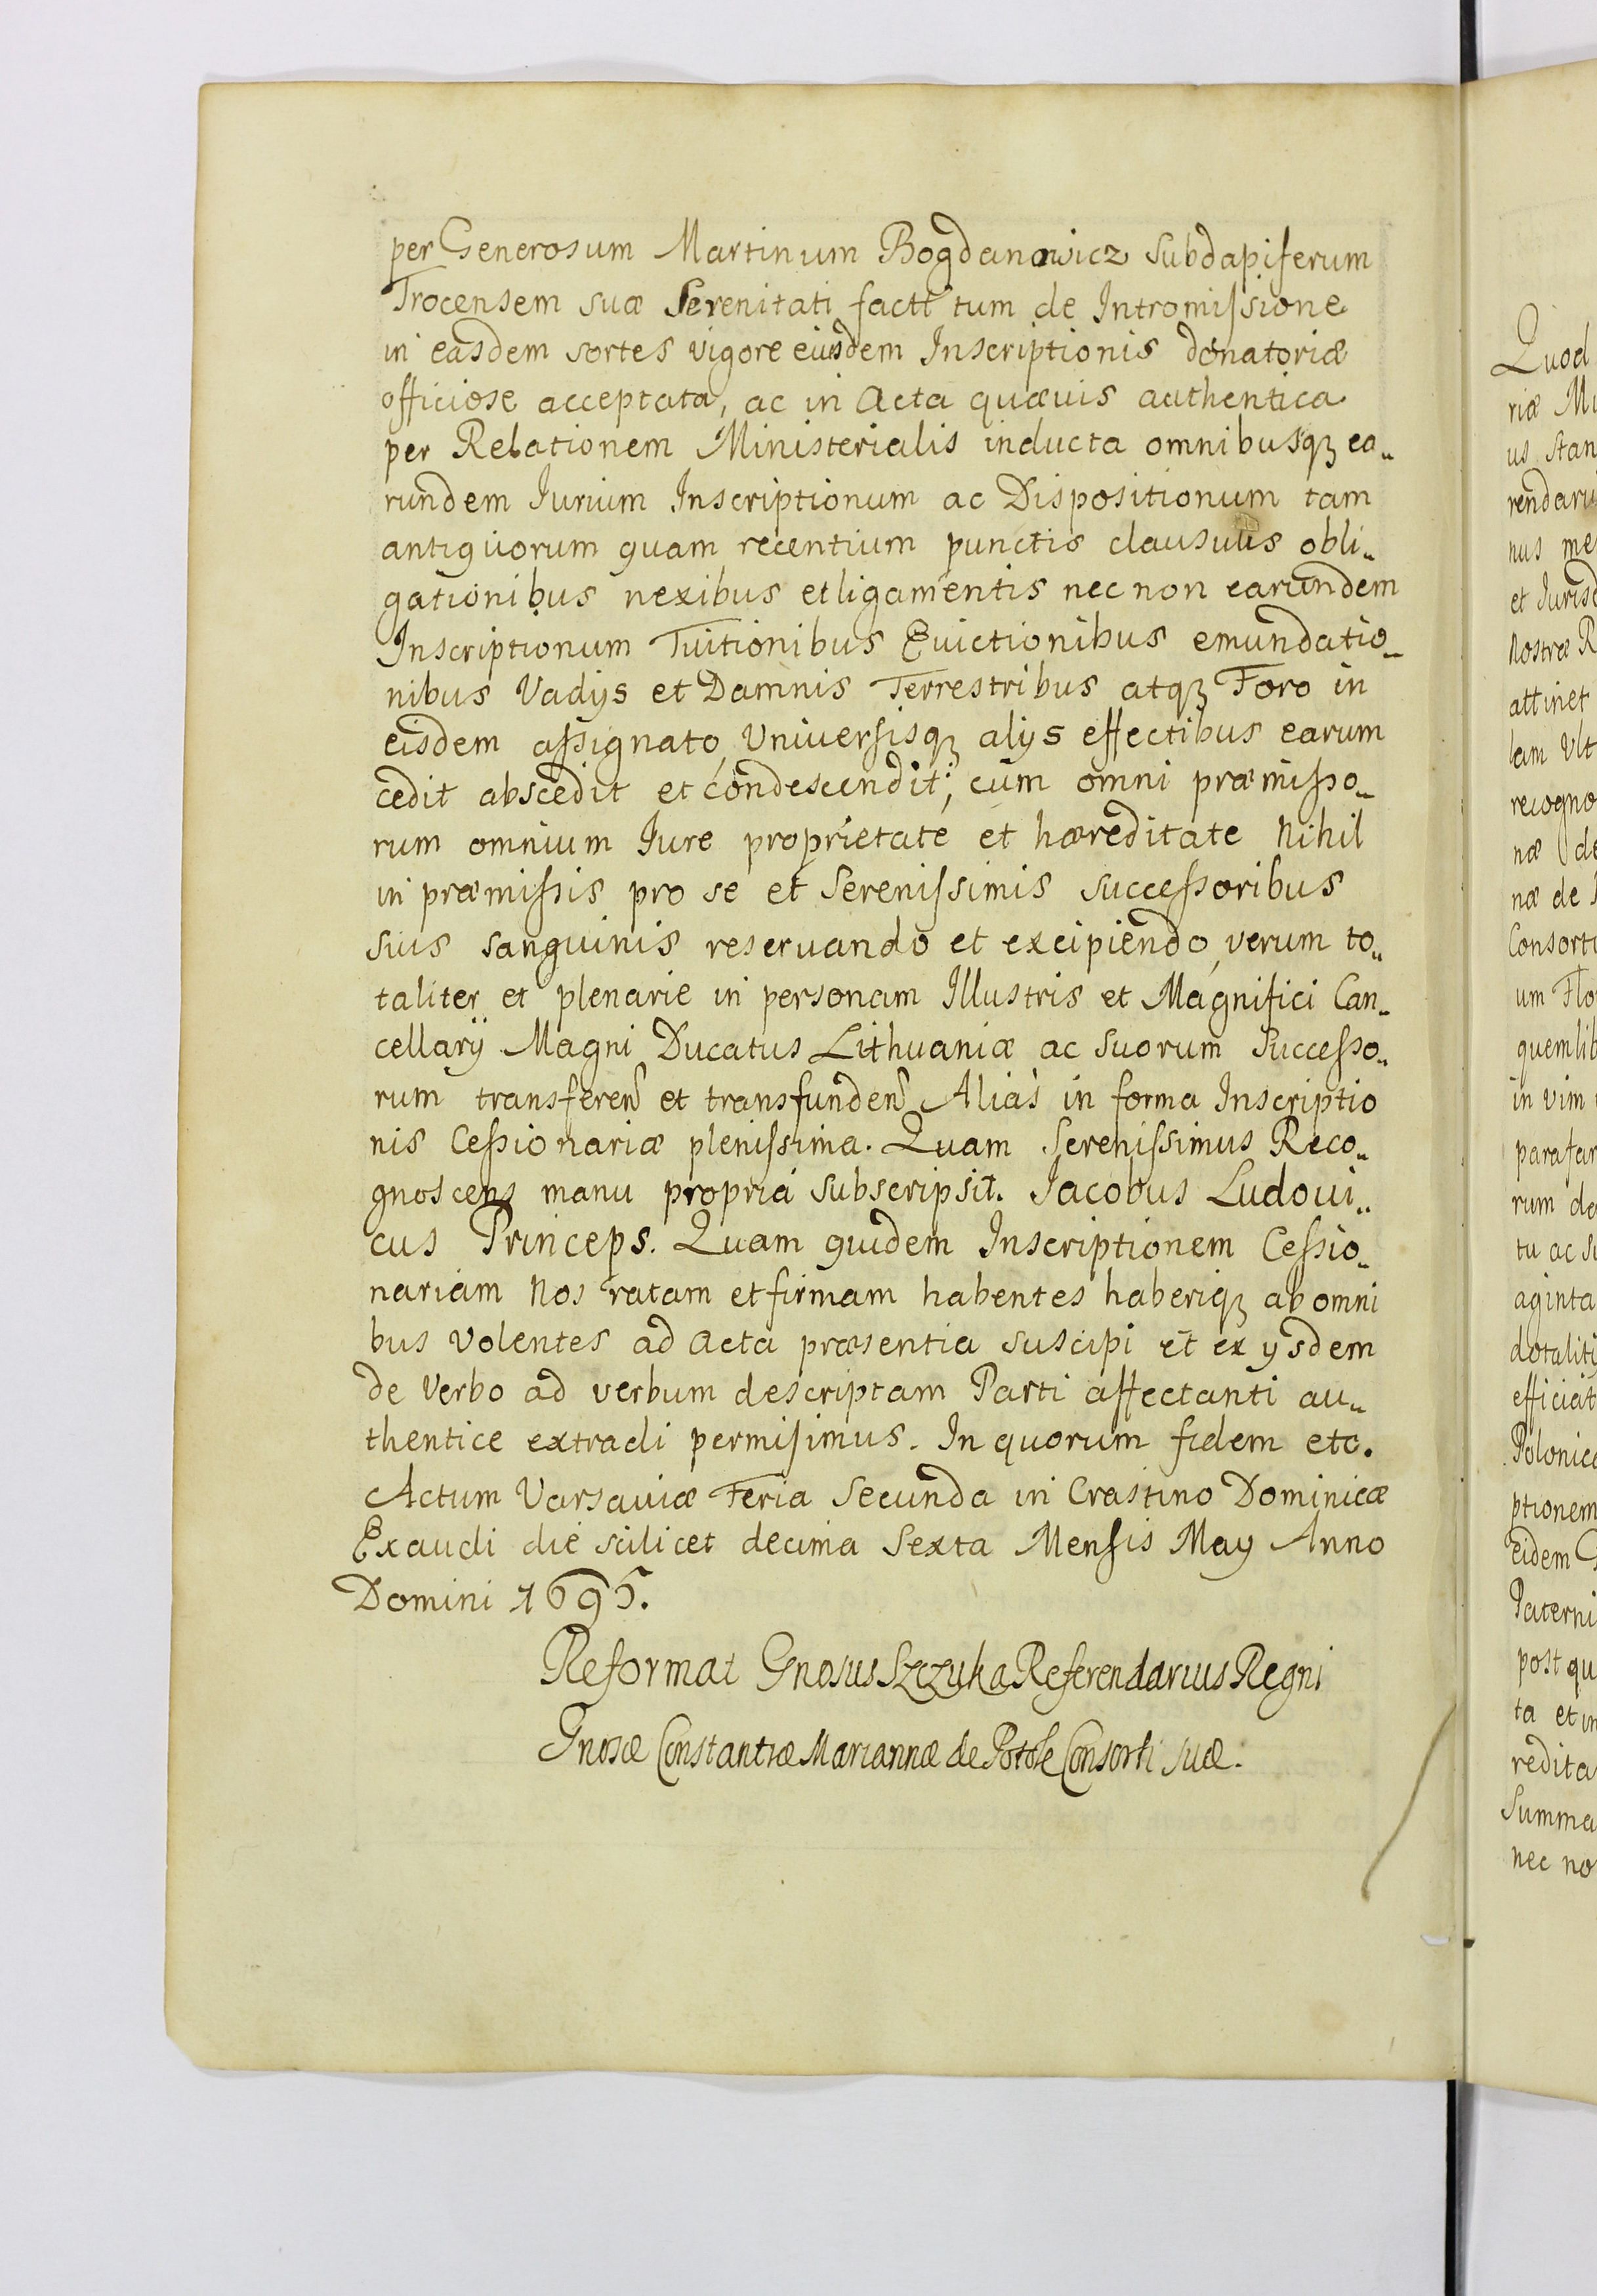 per Generosum Martinum Bogdanowicz Subdapiferum
Trocensem suæ Serenitati factt tum de Intromissione
in easdem sortes vigore eiusdem Inscriptionis donatoriæ
officiose acceptata, ac in Acta quævis authentica
per Relationem Ministerialis inducta omnibusqȝ ea„
rundem Iurium Inscriptionum ac Dispositionum tam
antiquorum quam recentium punctis clausulis obli„
gationibus nexibus et ligamentis nec non earundem
Inscriptionum Tuitionibus Euictionibus emundatio„
nibus Vadijs et Damnis Terrestribus atqȝ Foro in
eisdem assignato, Universisqȝ alijs effectibus earum
cedit abscedit et condescendit; cum omni præmisso„
rum omnium Iure proprietate et hæreditate Nihil
in præmissis pro se et Serenissimis successoribus
suis sanguinis reseruando et excipiendo, verum to„
taliter et plenarie in personam Illustris et Magnifici Can„
cellarij Magni Ducatus Lithuaniæ ac Suorum Successo„
rum transferen et transfunden Alias in forma Inscriptio
nis Cessionariæ plenissima. Quam Serenissimus Reco„
gnoscens manu propria subscripsit. Jacobus Ludoui„
cus Princeps. Quam quidem Inscriptionem Cessio„
nariam Nos ratam et firmam habentes haberiqȝ ab omni
bus Volentes ad Acta præsentia suscipi et ex ijsdem
de Verbo ad verbum descriptam Parti affectanti au„
thentice extradi permisimus. In quorum fidem etc.
Actum Varsaviæ Feria Secunda in Crastino Dominicæ
Exaudi die scilicet decima Sexta Mensis May Anno
Domini 1695.
Reformat Gnosus Szczuka Referendarius Regni
Gnosæ Constantiæ Mariannæ de Potok Consorti suæ.
Quod
riæ
us Stan
rendaru
nus me
et Jurisd
Nostræ R
attinet
lam Vlt
recogno
næ de
næ de
Consorti
um Flo
quemlib
in vim
parafar
rum de
tu ac su
aginta
dotaliti
efficiat
Polonica
ptionem
Eidem G
Paterni
post qu
ta et in
redita
Summa
nec no